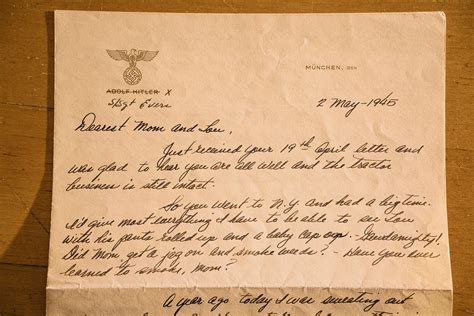 ADOLF HITLER X
MÜNCHEN, DEN
S/Sgt Evers
2 May - 1945
Dearest Mom and Lou,
Just received your 19th April letter and
was glad to hear you are all well and the tractor
business is still intact.
So you went to N.Y. and had a big time.
I'd give most everything I have to be able to see Lou
with his pants rolled up and a baby cap on - Godamighty!
Did Mom get a jag on and smoke weeds? - Have you ever
learned to smoke, Mom?
A year ago today I was sweating out